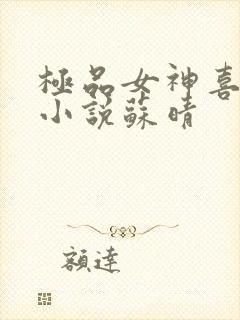 極品女神喜
小說蘇晴
額達